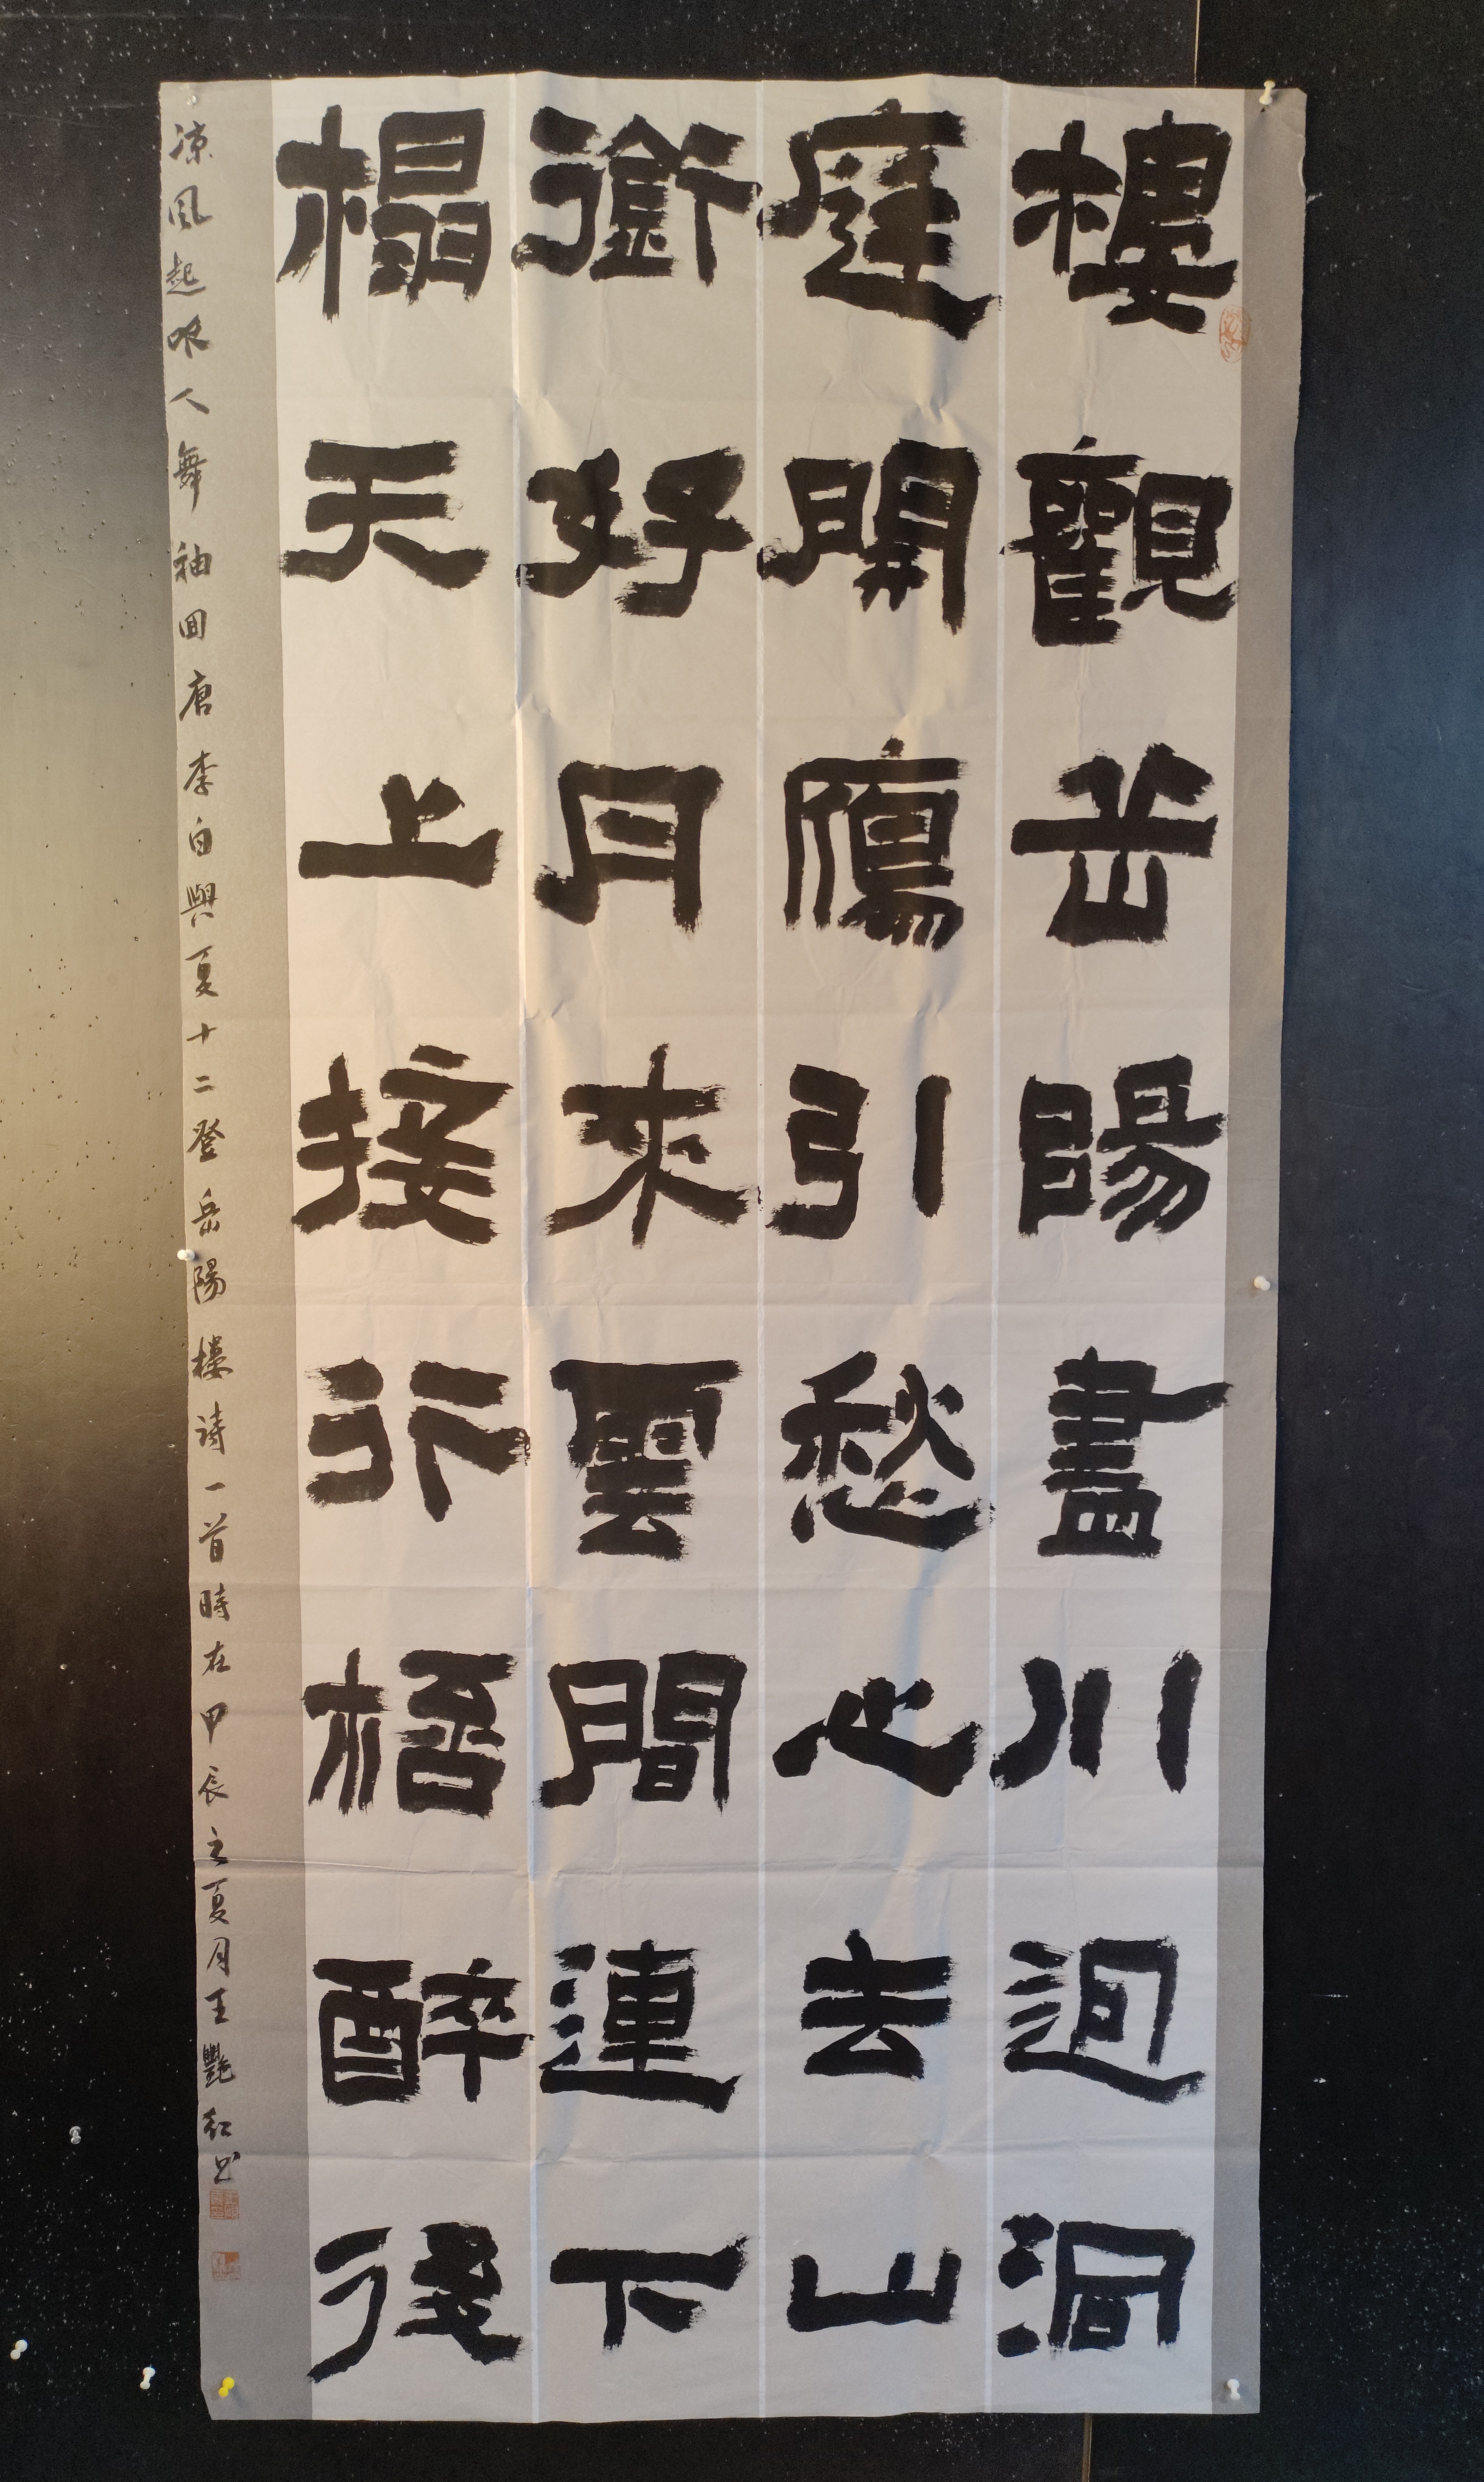 樓觀岳陽盡川迥洞
庭開鴈引愁心去山
銜好月來雲間連下
榻天上接行桮醉後
凉風起吹人舞袖囬唐李白與夏十二登岳陽樓诗一首時在甲辰之夏月王艷紅书